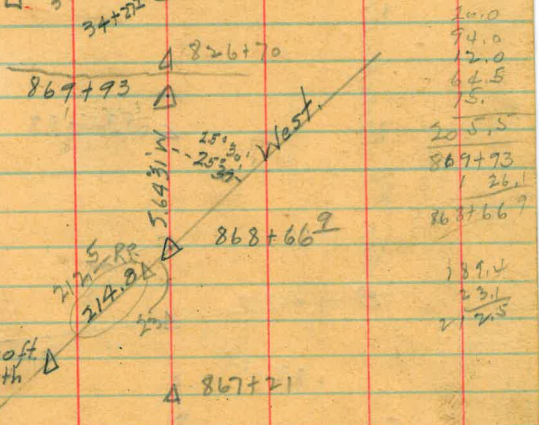 34+22
826+70
869+93
S.6431'W
West.
868+66 9
212.5 RP.
214.8
oft
th
867+21
10.0
94.0
12.0
64.5
15.
205.5
869+93
1 26.1
868+66 9
189.4
23.1
212.5